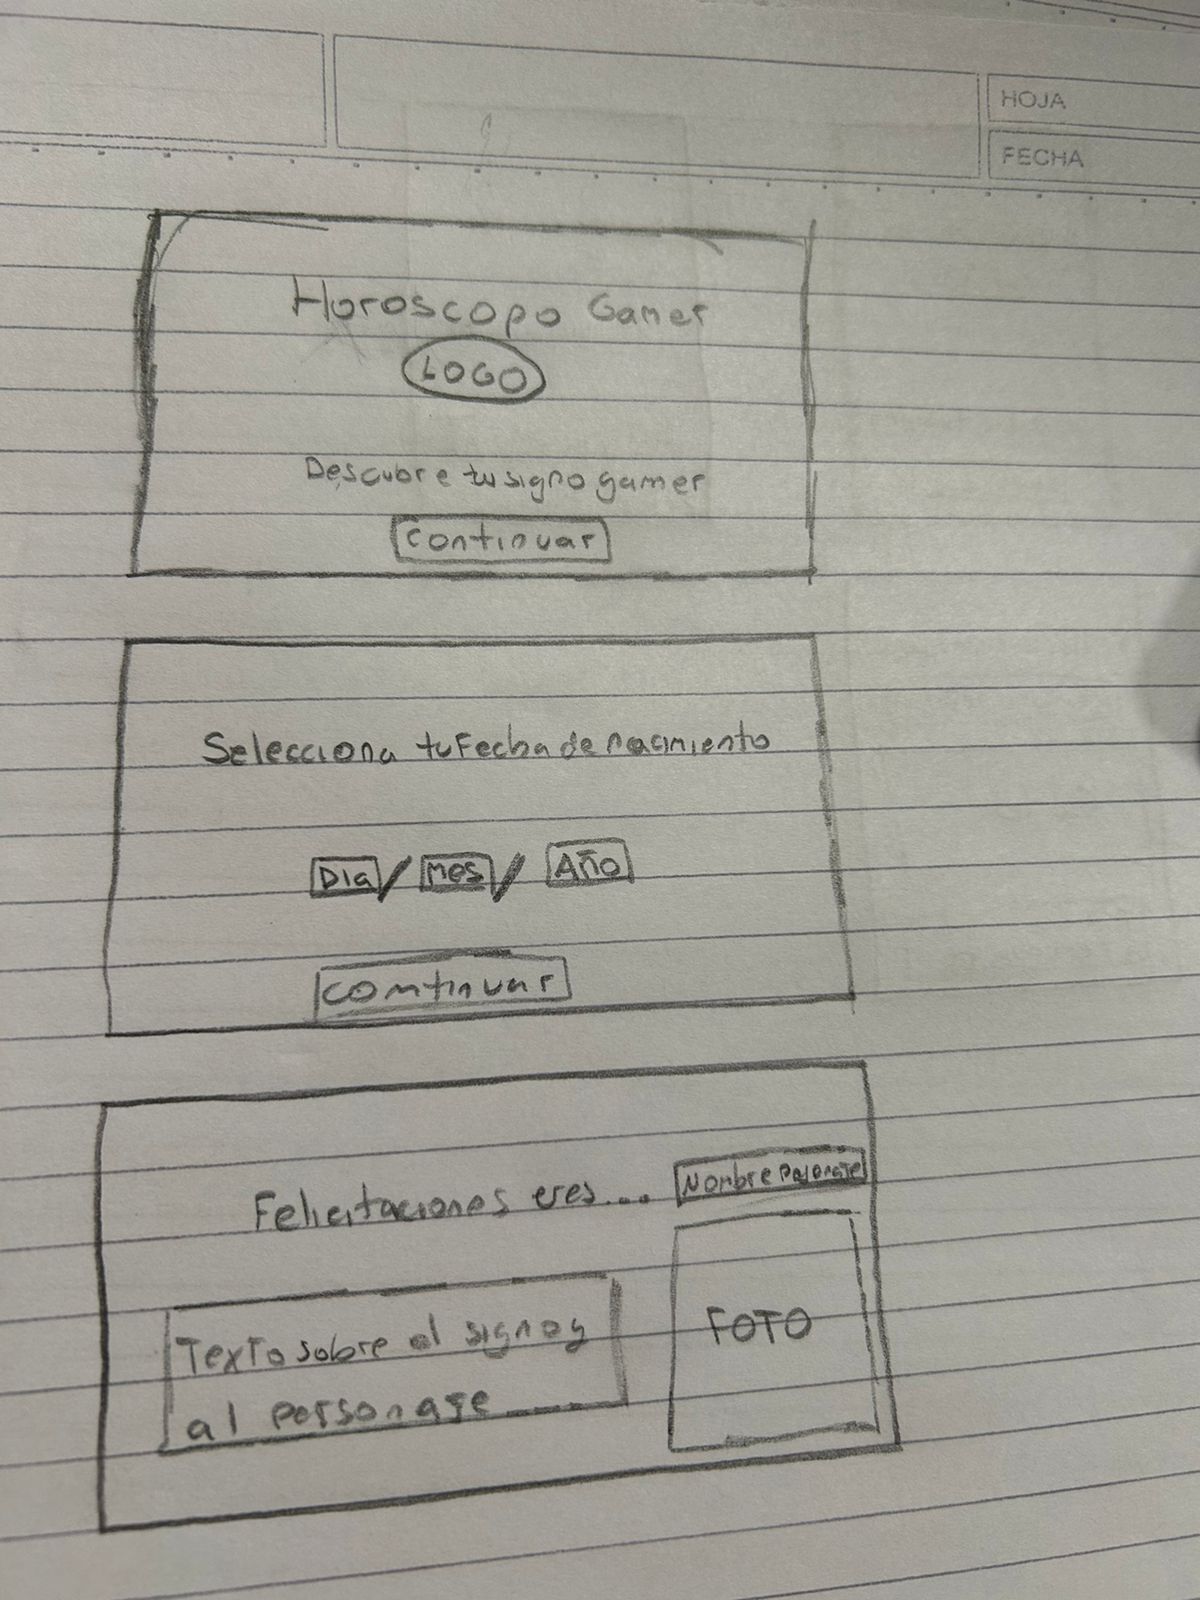 HOJA
FECHA
Horoscopo Gamer
LOGO
Descubre tu signo gamer
Continuar
Selecciona tu Fecha de nacimiento
Dia / Mes / Año
Continuar
Felicitaciones eres... Nombre Personaje
Texto sobre el signo y
al personaje
FOTO